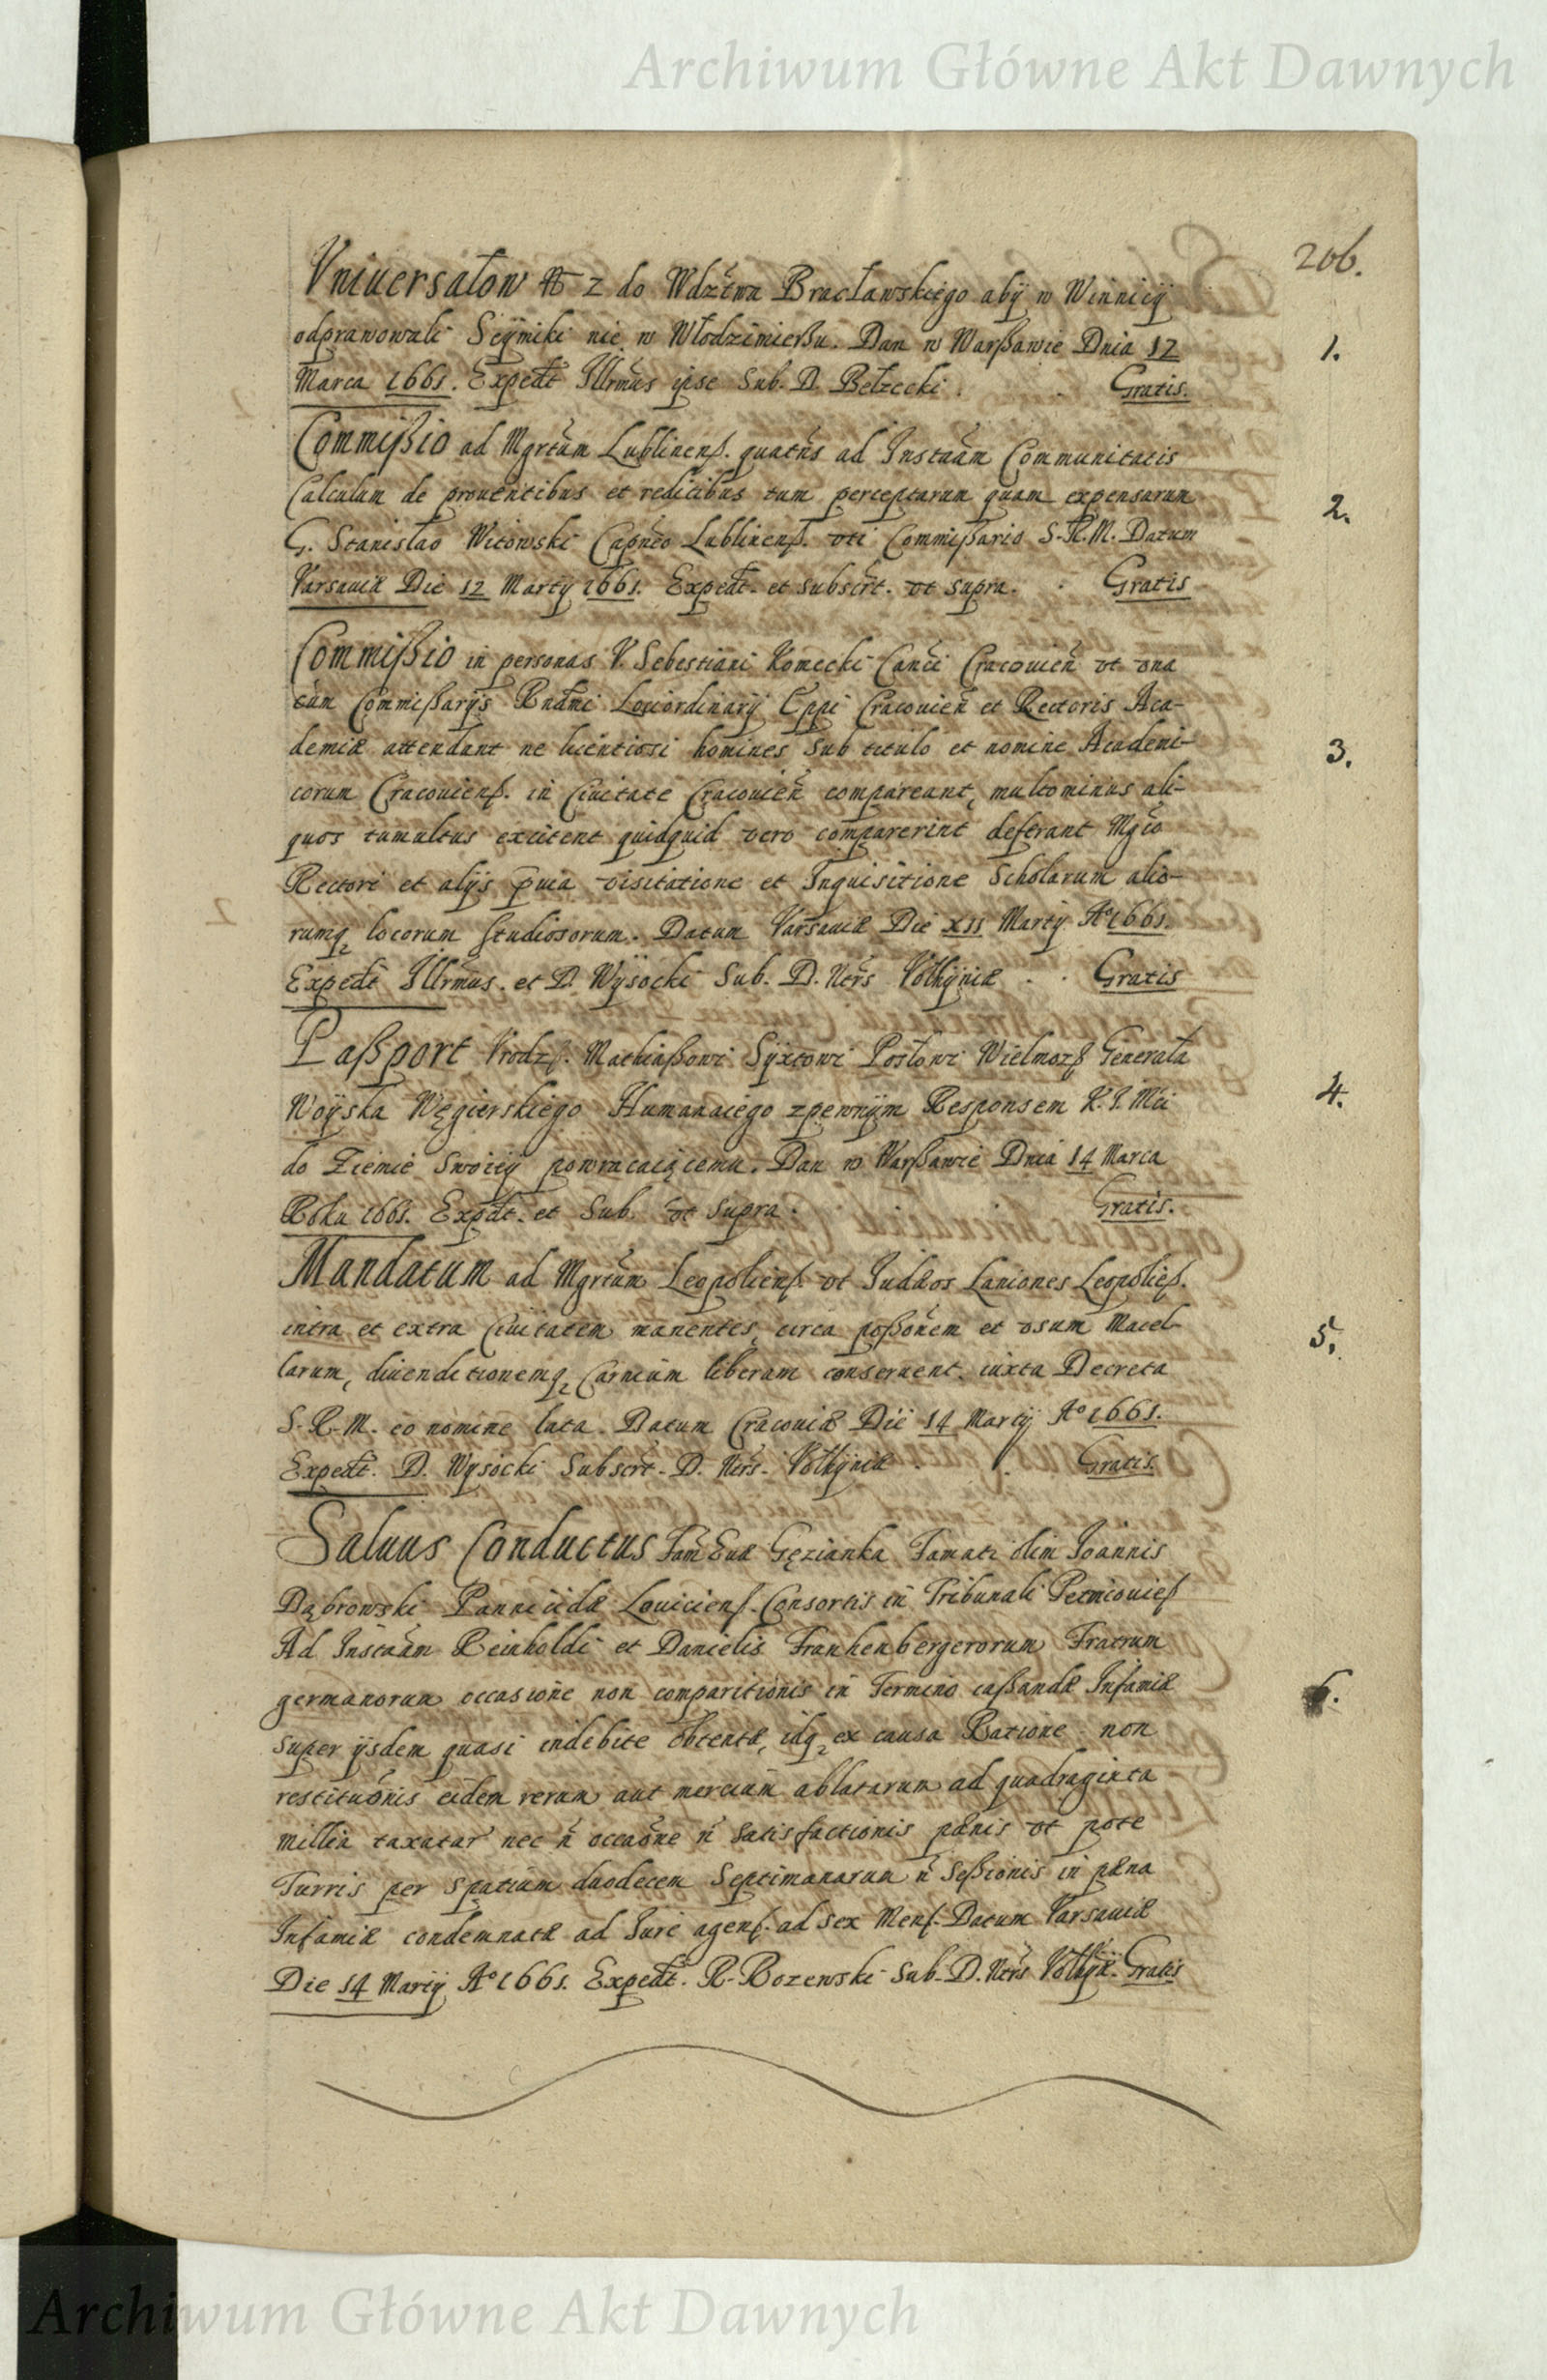 Archiwum Główne Akt Dawnych
206.
Vniuersałow z do Wdztwa Bracławskiego aby w Winnicy
odprawowali Seymiki nie w Włodzimierßu. Dan w Warßawie Dnia 12
1.
Marca 1661. Expedt Illrmus ipse Sub. D. Bełzecki. Gratis.
Commißio ad Mgrtum Lublinens. quatns ad Instaam Communitatis
Calculum de prouentibus et reditibus tum perceptarum quam expensarum
2.
G. Stanislao Witowski Capneo Lublinens. vti Commißario S.R.M. Datum
Varsauiæ Die 12 Martij 1661. Expedt. et subscrt. vt supra. Gratis
Commißio in personas V. Sebestiani Komecki Canci Cracouien vt vna
cum Commißarijs Rndmi Lociordinarij Eppi Cracouien et Rectoris Aca-
demiæ attendant ne licentiosi homines sub titulo et nomine Academi-
3.
corum Cracouiens. in Ciuitate Cracouien compareant, multominus ali-
quos tumultus excitent quidquid vero comparerint deferant Mgco
Rectori et alijs puia visitatione et Inquisitione Scholarum alio-
rumq locorum studiosorum. Datum Varsauiæ Die XII Martij Ao 1661.
Expedt Illrmus. et D. Wysocki Sub. D. Ners Vołhyniæ Gratis
Paßport Vrodz. Mathiaßowi Syxtowi Posłowi Wielmoz Generała
Woyska Węgierskiego Humanaiego zpewnym Responsem K.J.Mci
4.
do Ziemie Swoiey powracaiącemu. Dan w Warßawie Dnia 14 Marca
Roku 1661. Expdt. et Sub. vt supra. Gratis.
Mandatum ad Mgrtum Leopoliens. vt Judæos Laniones Leopolies.
intra et extra Ciuitatem manentes, circa poßonem et vsum Macel-
5.
larum, diuenditionemq Carnium liberam conseruent iuxta Decreta
S.R.M. eo nomine lata. Datum Cracouiæ Die 14 Martij Ao 1661.
Expedt. D. Wysocki Subscrt. D. Ners. Vołhyniæ Gratis.
Saluus Conductus Fam Euæ Gęzianka Famati olim Joannis
Dąbrowski Pannicidæ Louiciens. Consortis in Tribunali Petricouies
Ad Instaam Reinholdi et Danielis Frankenbergerorum Fratrum
germanorum occasione non comparitionis in Termino caßandæ Infamiæ
6.
super ijsdem quasi indebite obtentæ, idq ex causa Ratione non
restituonis eidem rerum aut mercium ablatarum ad quadraginta
millia taxatar nec n occaone n satisfactionis pœnis vt pote
Turris per spatium duodecem Septimanarum n seßionis in pœna
Infamiæ condemnatæ ad Jure agens. ad sex Mens. Datum Varsauiæ
Die 14 Martij Ao 1661. Expedt. R. Bozewski Sub. D. Ners Vołhyæ. Gratis
Archiwum Główne Akt Dawnych